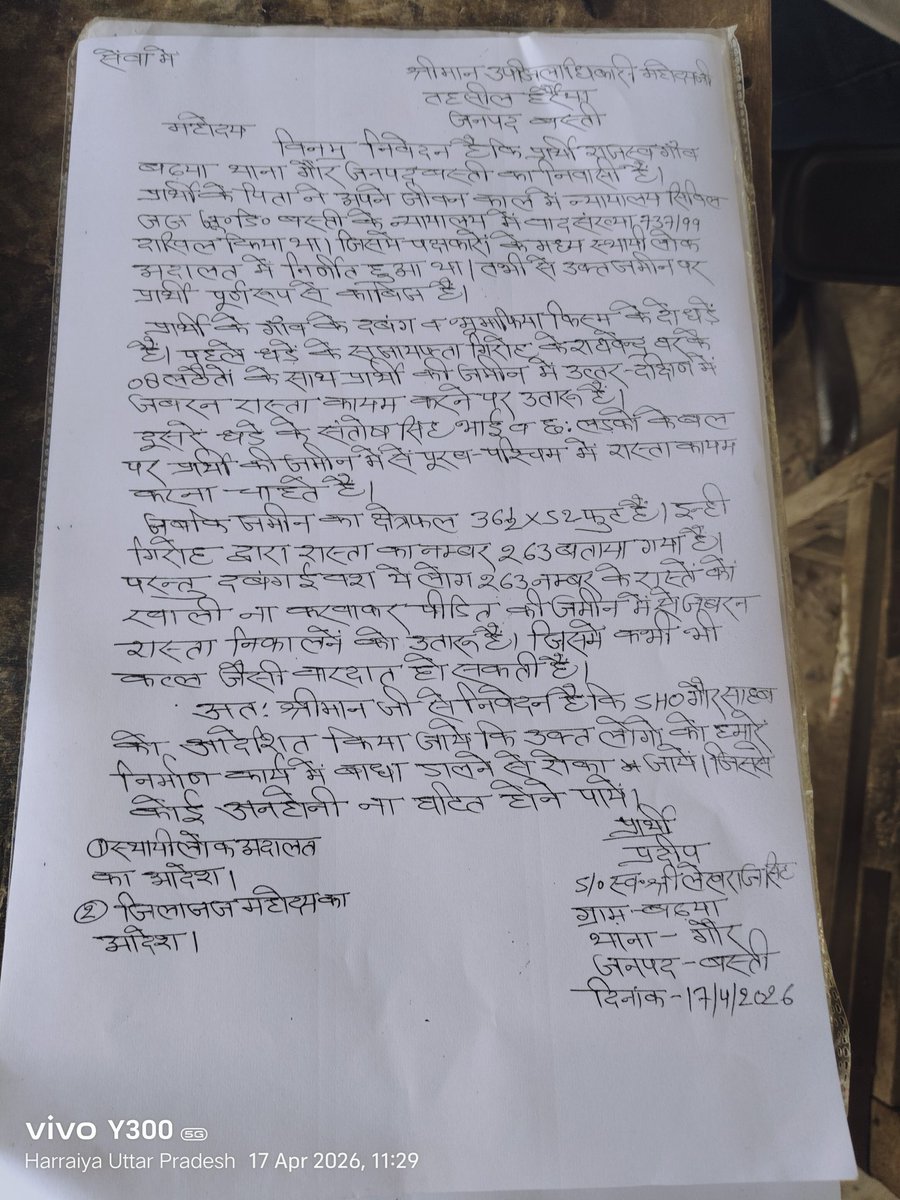 सेवा में
श्रीमान उपजिलाधिकारी महोदयजी
तहसील हर्रैया
जनपद बस्ती
महोदय
विनम्र निवेदन है कि प्रार्थी राजस्व गाँव
बढया थाना गौर जनपद बस्ती का निवासी है।
प्रार्थी के पिता ने अपने जीवन काल में न्यायालय सिविल
जज जू०डि० बस्ती के न्यायालय में वाद संख्या 737/99
दाखिल किया था। जिसमें पक्षकारों के मध्य स्थायी लोक
अदालत में निर्णीत हुआ था। तभी से उक्त जमीन पर
प्रार्थी पूर्ण रूप से काबिज है।
प्रार्थी के गाँव के दबंग व भूमाफिया किस्म के दो धड़े
है। पहले धड़े के सजायफ्ता गिरोह के
08 लठैतों के साथ प्रार्थी की जमीन में उत्तर-दक्षिण में
जबरन रास्ता कायम करने पर उतारू है।
दूसरे धड़े के संतोष सिंह भाई व छ: लडकों के बल
पर प्रार्थी की जमीन में से पूरब-पश्चिम में रास्ता कायम
करना चाहते है।
जबकि जमीन का क्षेत्रफल 36½ X 52 फुट है। इन्ही
गिरोह द्वारा रास्ता का नम्बर 263 बताया गया है।
परन्तु दबंगई वश ये लोग 263 नम्बर के रास्ते को
खाली ना करवाकर पीडित की जमीन में से जबरन
रास्ता निकालने को उतारू है। जिसमें कभी भी
कत्ल जैसी वारदात हो सकती है।
अत: श्रीमान जी से निवेदन है कि SHO गौर साहब
को आदेशित किया जाये कि उक्त लोगों को हमारे
निर्माण कार्य में बाधा डालने से रोका जाये। जिससे
कोई अनहोनी ना घटित होने पाये।
प्रार्थी
प्रदीप
S/o स्व० श्री लेखराज सिंह
ग्राम-बढया
थाना-गौर
जनपद-बस्ती
दिनांक-17/4/2026
① स्थायी लोक अदालत
का आदेश।
② जिला जज महोदय का
आदेश।
vivo Y300 5G
Harraiya Uttar Pradesh 17 Apr 2026, 11:29